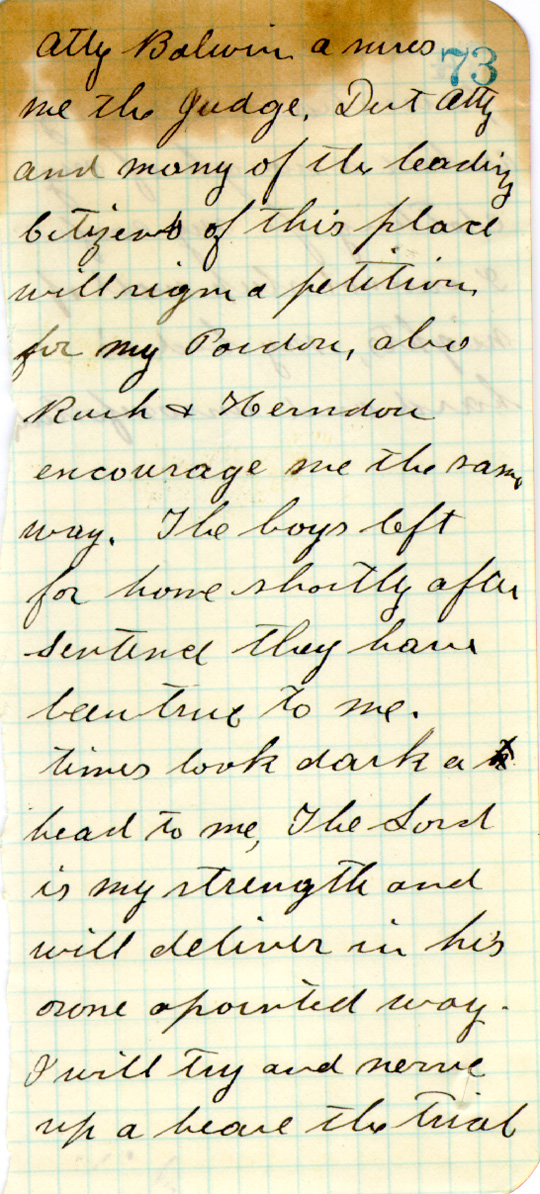 Atty Balwin asures
73
me the Judge, Dist Atty
and many of the leading
Citizens of this place
will sign a petition
for my Pardon, also
Ruch & Herndon
encourage me the same
way. The boys left
for home shortly after
sentence they have
been true to me.
times look dark a
head to me, The Lord
is my strength and
will deliver in his
owne apointed way.
I will try and nerve
up a beare the trial